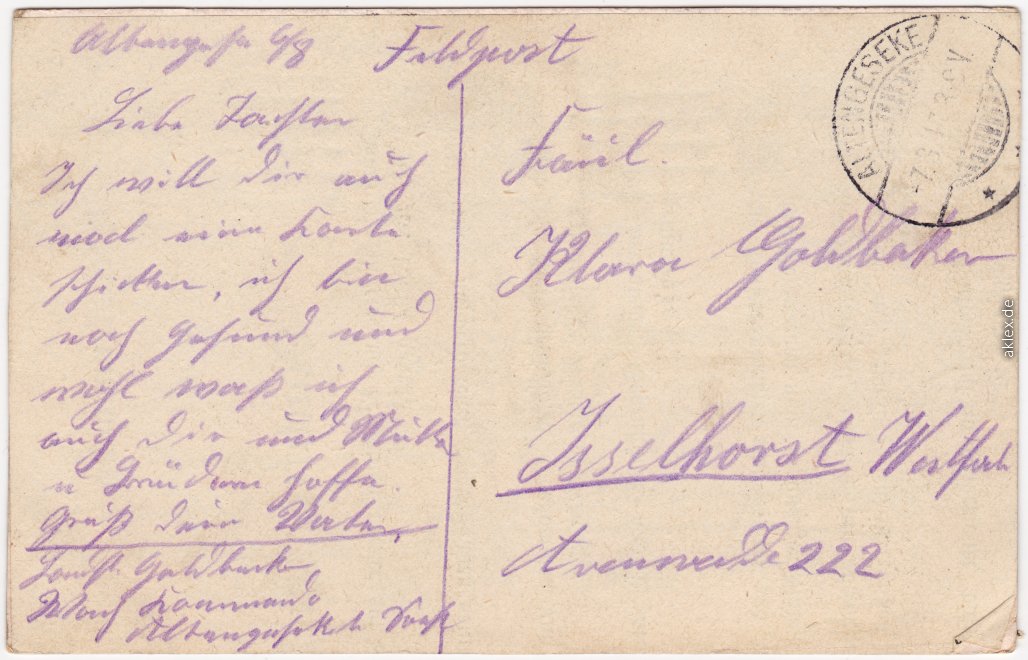 Altengeseke 6/8
Feldpost
Liebe Tochter
Ich will dir auch
mal eine Karte
schicken, ich bin
noch gesund und
wohl waß ich
auch dir und Mutter
u Brüdern hoffe.
Gruß dein Vater,
Landst. Goldbecker
Wach Kommando
Altengeseke b Soest
Fräul.
Klara Goldbecker
Isselhorst Westfal
Avenwedde 222
ALTENGESEKE
7.8.17. 8-9V.
aklex.de